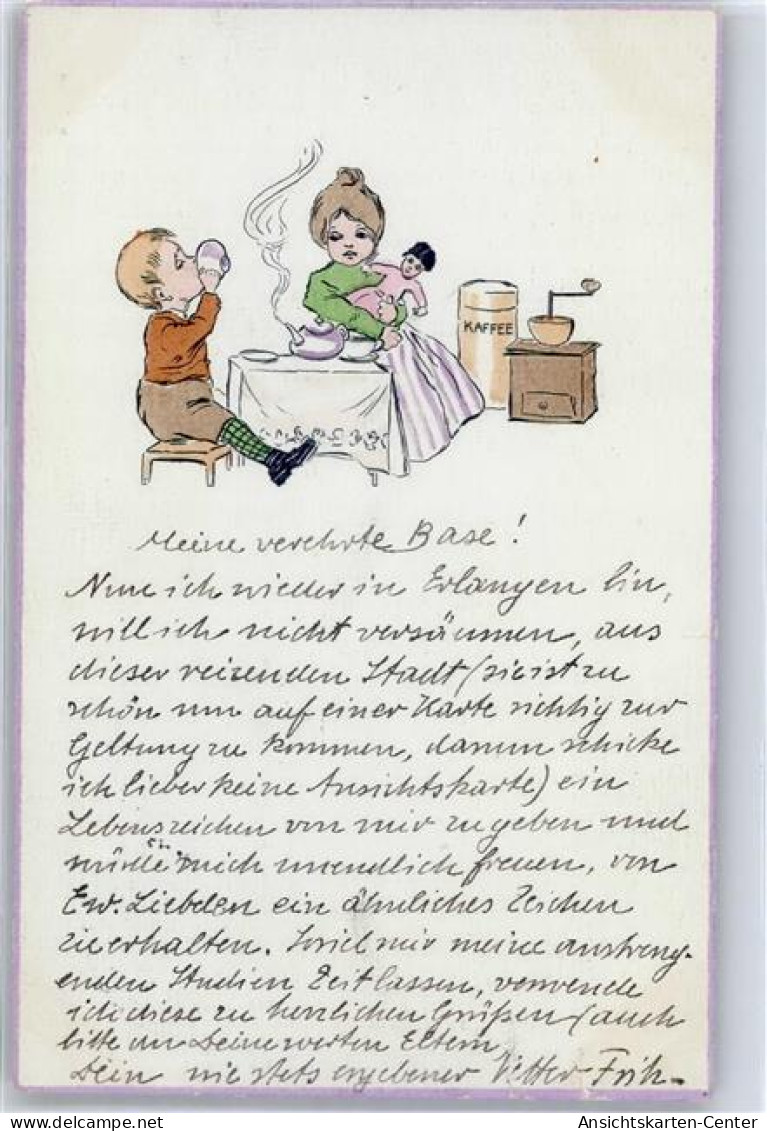 KAFFEE
Meine verehrte Base!
Nun ich wieder in Erlangen bin,
will ich nicht versäumen, aus
dieser reizenden Stadt (sie ist zu
schön um auf einer Karte richtig zur
Geltung zu kommen, darum schicke
ich lieber keine Ansichtskarte) ein
Lebenszeichen von mir zu geben und
würde mich unendlich freuen, von
Ew. Liebden ein ähnliches Zeichen
zu erhalten. Soviel mir meine anstreng-
enden Studien Zeit lassen, verwende
ich diese zu herzlichen Grüßen (auch
bitte an Deine werten Eltern
Dein stets ergebener Vetter
Ansichtskarten-Center